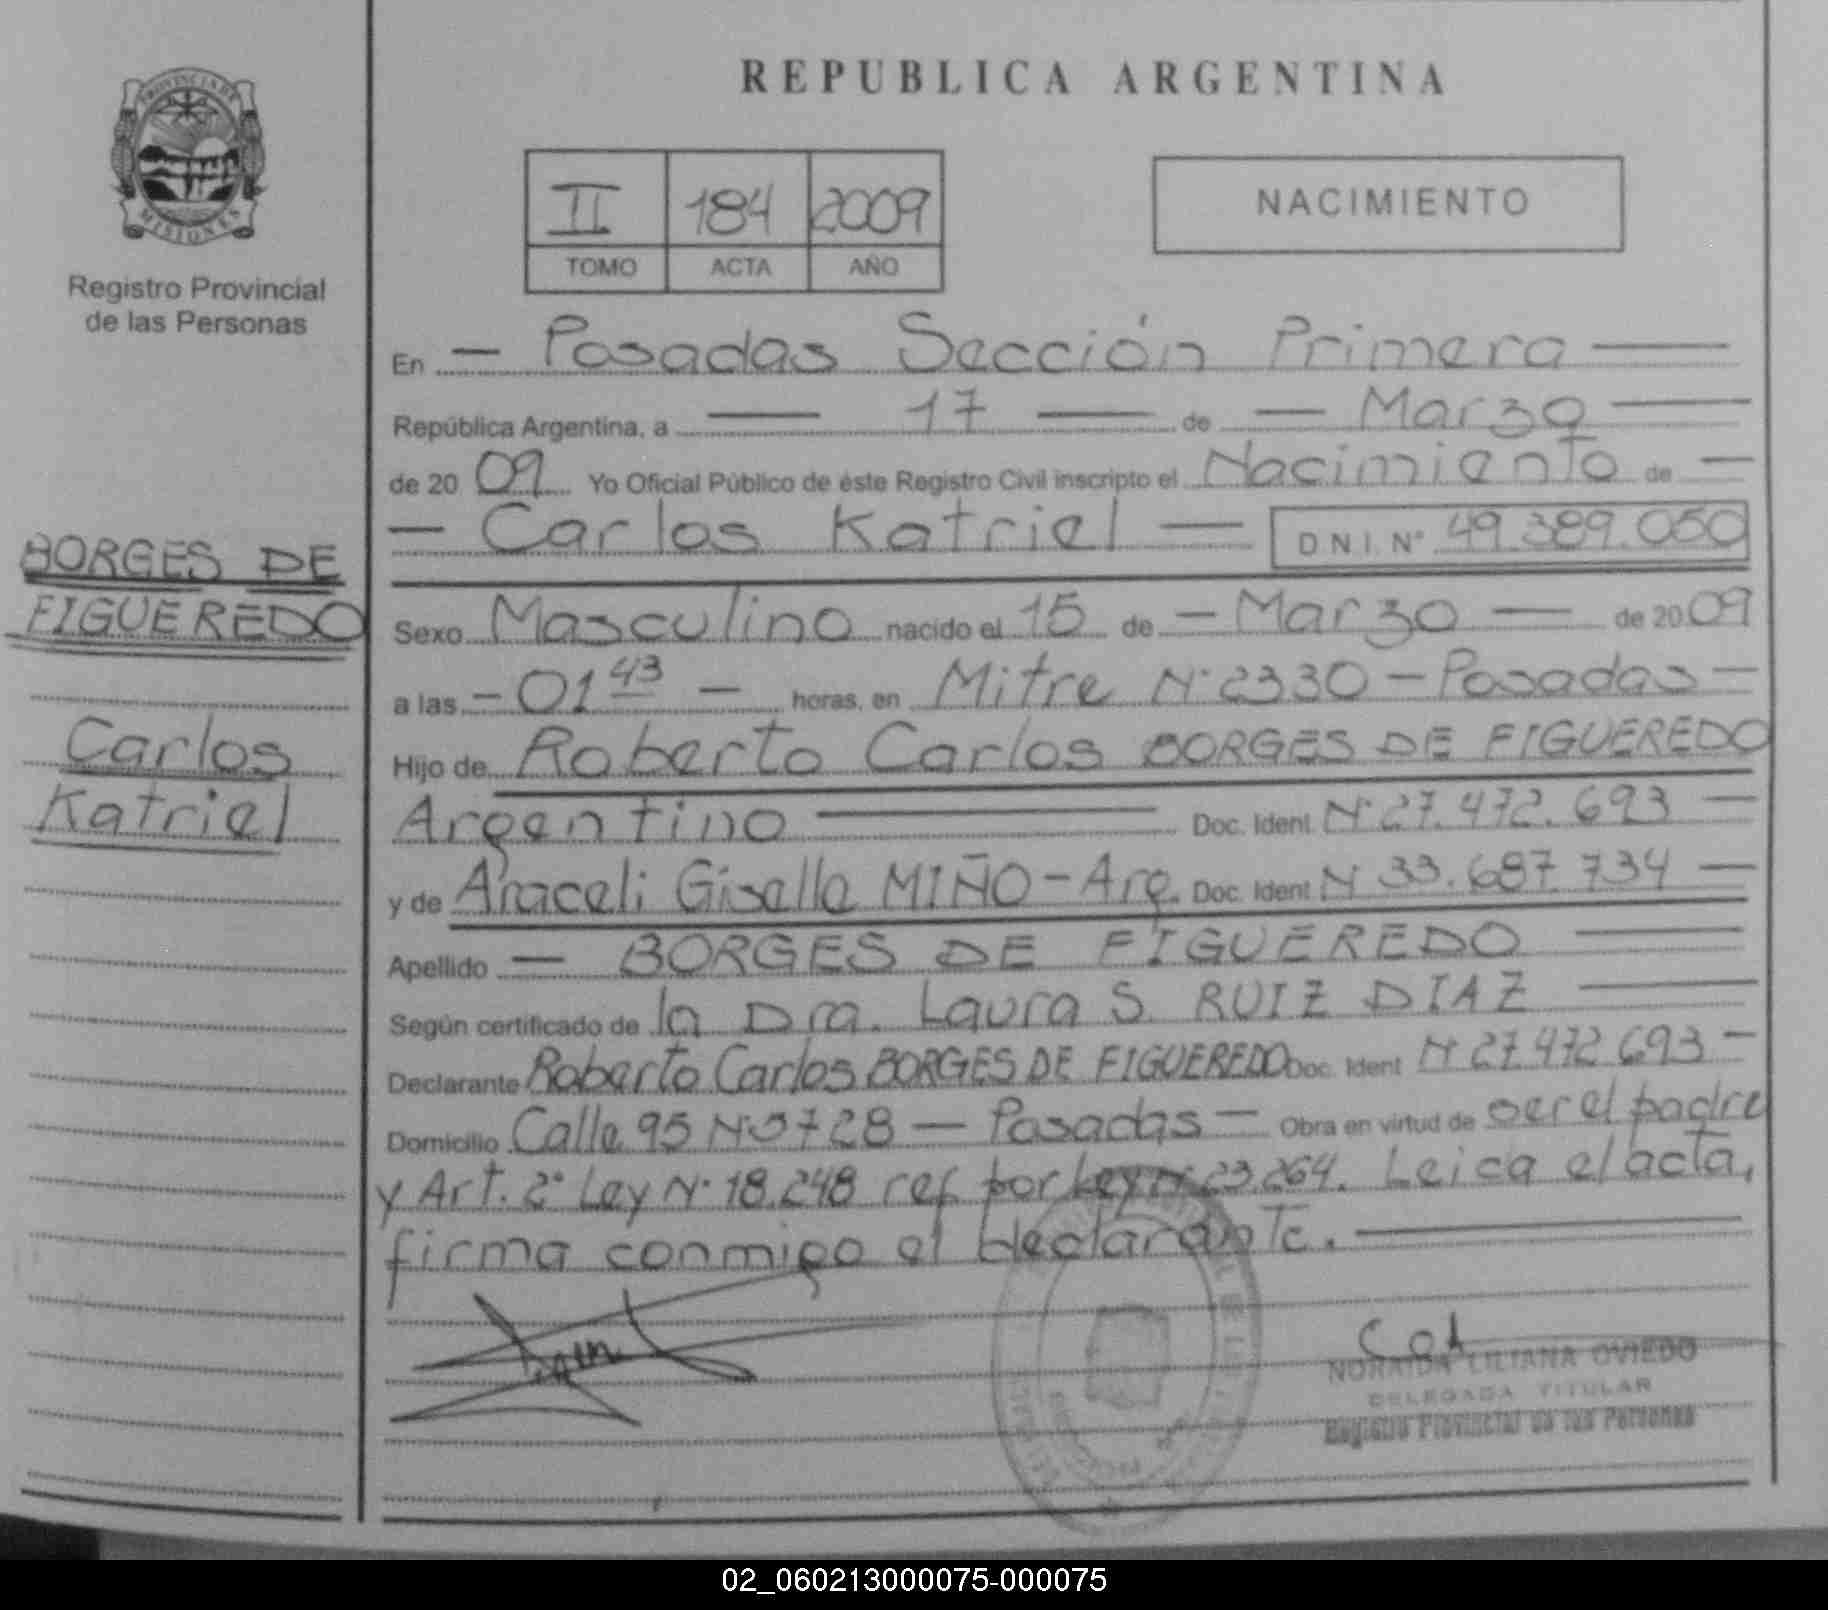 REPUBLICA ARGENTINA
PROVINCIA DE
MISIONES
Registro Provincial
de las Personas
II 184 2009
TOMO ACTA AÑO
NACIMIENTO
BORGES DE
FIGUEREDO
Carlos
Katriel
En — Posadas Sección Primera —
República Argentina, a — 17 — de — Marzo —
de 20 09 Yo Oficial Público de éste Registro Civil inscripto el Nacimiento de —
— Carlos Katriel — D.N.I. N° 49.389.050
Sexo Masculino nacido el 15 de — Marzo — de 20 09
a las — 01 43 — horas, en Mitre N° 2330 — Posadas —
Hijo de Roberto Carlos BORGES DE FIGUEREDO
Argentino — Doc. Ident N° 27.472.693 —
y de Araceli Giselle MIÑO - Arg. Doc. Ident N 33.687.734 —
Apellido — BORGES DE FIGUEREDO —
Según certificado de la Dra. Laura S. RUIZ DIAZ —
Declarante Roberto Carlos BORGES DE FIGUEREDO Doc. Ident N 27.472.693 —
Domicilio Calle 95 N° 3728 — Posadas — Obra en virtud de ser el padre
y Art. 2° Ley N° 18.248 ref. por Ley N° 23.264. Leida el acta,
firma conmigo el declarante. —
NORAIDA LILIANA OVIEDO
DELEGADA TITULAR
Registro Provincial de las Personas
02_060213000075-000075